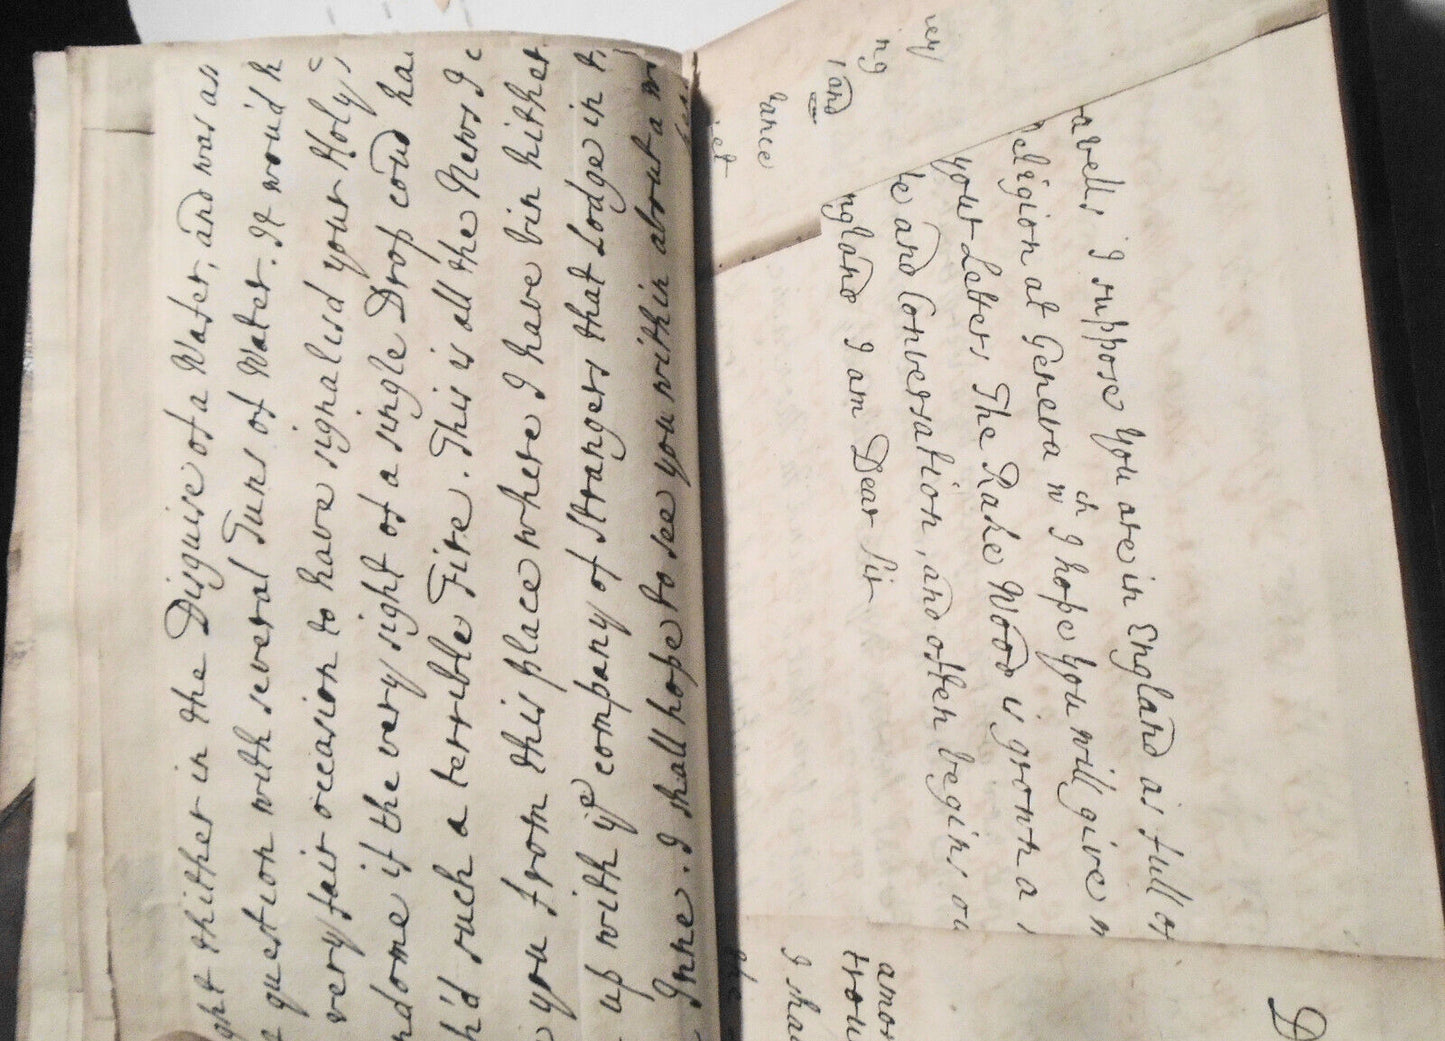 ght thither in the Disguise of a Water, and was as
question with several Tuns of Water. It would h
very fair occasion to have signalisd your Holy
ndome if the very sight of a single Drop coud ha
h'd such a terrible Fire. This is all the News I c
you from this place where I have bin hithert
up with yͤ company of Strangers that Lodge in t
Inne. I shall hope to see you within about a
vey
ng
and
rance
et
avells I suppose You are in England as full o
eligion at Geneva wᶜʰ I hope you will give
your Letters The Rake Wood is grown a
e and Conversation, and often begins ou
ngland I am Dear Sir
D
amon
trou
I shal